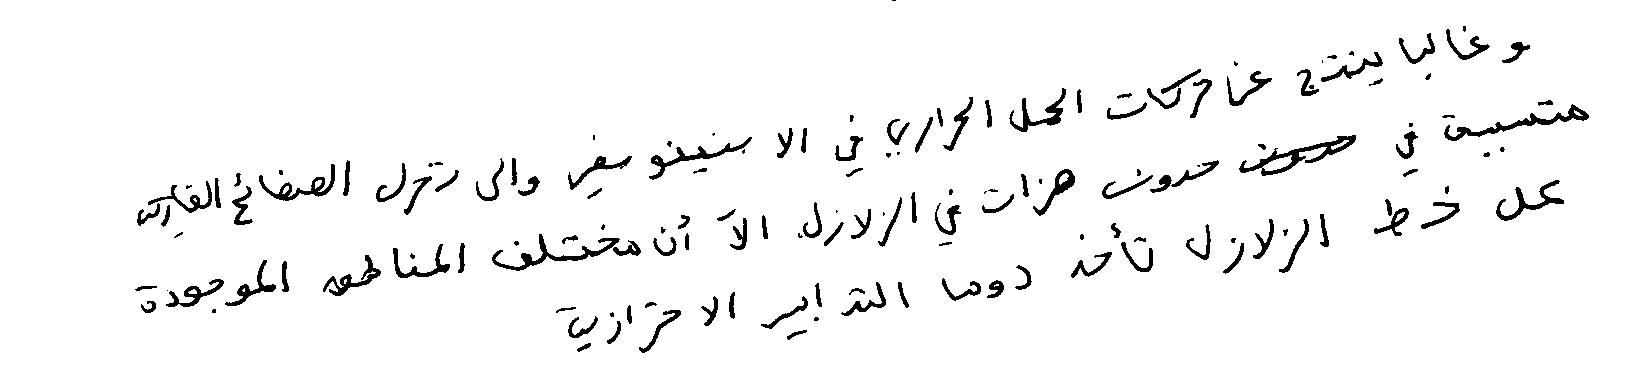 وغالبا ينتج عن حركات الحمل الحراري في الاستينوسفير والى تحرك الصفائح القارية
متسببة في حدوث هزات في الزلازل الآ أن مختلف المناطق الموجودة
على خط الزلازل تأخذ دوما التدابير الاحترازية